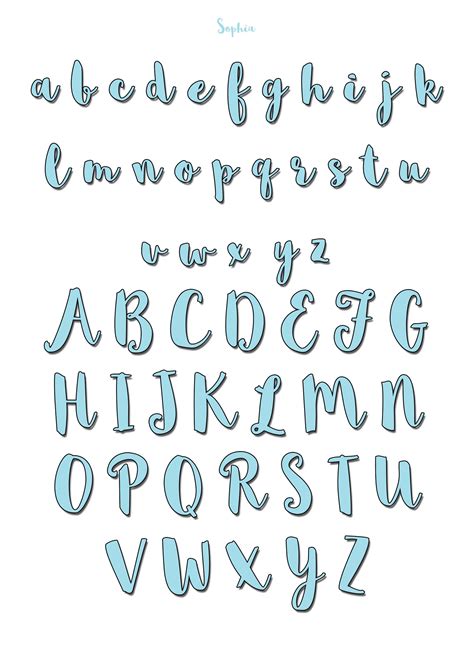 Sophia
a b c d e f g h i j k
l m n o p q r s t u
v w x y z
A B C D E F G
H I J K L M N
O P Q R S T U
V W X Y Z